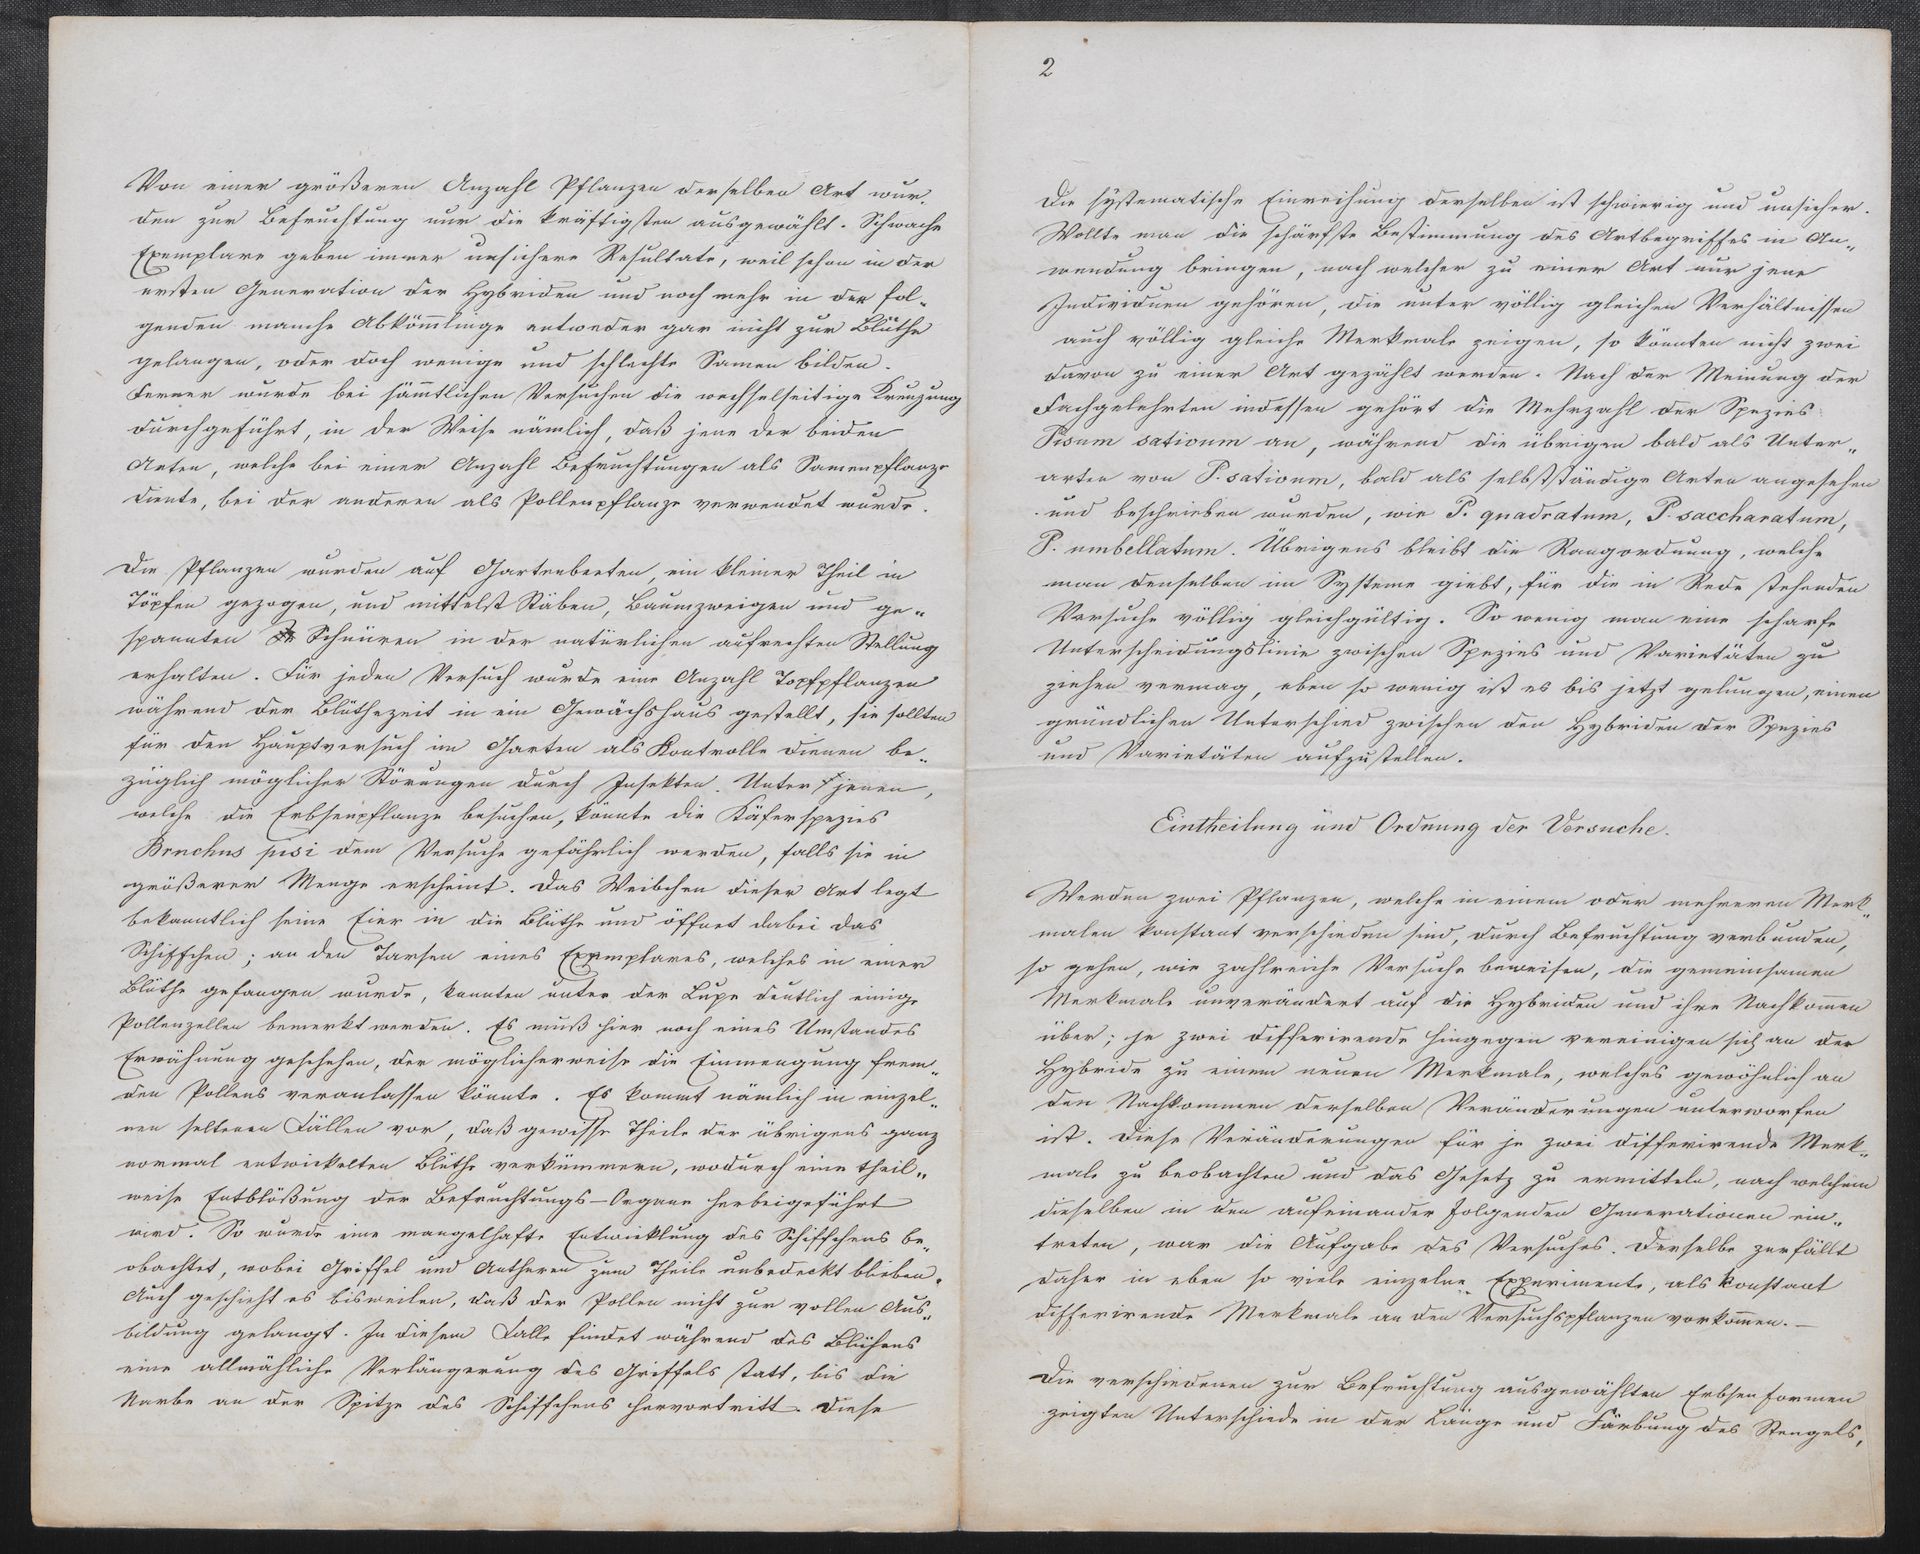 Von einer größeren Anzahl Pflanzen derselben Art wur-
den zur Befruchtung nur die kräftigsten ausgewählt. Schwache
Exemplare geben immer unsichere Resultate, weil schon in der
ersten Generation der Hybriden und noch mehr in der fol-
genden manche Abkömlinge entweder gar nicht zur Blüthe
gelangen, oder doch wenige und schlechte Samen bilden.
Ferner wurde bei sämtlichen Versuchen die wechselseitige Kreuzung
durchgeführt, in der Weise nämlich, daß jene der beiden
Arten, welche bei einer Anzahl Befruchtungen als Samenpflanze
diente, bei der anderen als Pollenpflanze verwendet wurde.
Die Pflanzen wurden auf Gartenbeeten, ein kleiner Theil in
Töpfen gezogen, und mittelst Stäben, Baumzweigen und ge-
spannten Schnüren in der natürlichen aufrechten Stellung
erhalten. Für jeden Versuch wurde eine Anzahl Topfpflanzen
während der Blüthezeit in ein Gewächshaus gestellt, sie sollten
für den Hauptversuch im Garten als Kontrolle dienen be-
züglich möglicher Störungen durch Insekten. Unter jenen,
welche die Erbsenpflanze besuchen, könnte die Käferspezies
Bruchus pisi dem Versuche gefährlich werden, falls sie in
größerer Menge erscheint. Das Weibchen dieser Art legt
bekanntlich seine Eier in die Blüthe und öffnet dabei das
Schiffchen; an den Tarsen eines Exemplares, welches in einer
Blüthe gefangen wurde, konnten unter der Lupe deutlich einige
Pollenzellen bemerkt werden. Es muß hier noch eines Umstandes
Erwähnung geschehen, der möglicherweise die Einmengung frem-
den Pollens veranlassen könnte. Es kommt nämlich in einzel-
nen seltenen Fällen vor, daß gewisse Theile der übrigens ganz
normal entwickelten Blüthe verkümmern, wodurch eine theil-
weise Entblößung der Befruchtungs-Organe herbeigeführt
wird. So wurde eine mangelhafte Entwicklung des Schiffchens be-
obachtet, wobei Griffel und Antheren zum Theile unbedeckt blieben.
Auch geschieht es bisweilen, daß der Pollen nicht zur vollen Aus-
bildung gelangt. In diesem Falle findet während des Blühens
eine allmähliche Verlängerung des Griffels statt, bis die
Narbe an der Spitze des Schiffchens hervortritt. Diese
2
Die systematische Einreihung derselben ist schwierig und unsicher.
Wollte man die schärfste Bestimmung des Artbegriffes in An-
wendung bringen, nach welcher zu einer Art nur jene
Individuen gehören, die unter völlig gleichen Verhältnissen
auch völlig gleiche Merkmale zeigen, so könnten nicht zwei
davon zu einer Art gezählt werden. Nach der Meinung der
Fachgelehrten indessen gehört die Mehrzahl der Spezies
Pisum sativum an, während die übrigen bald als Unter-
arten von P. sativum, bald als selbstständige Arten angesehen
und beschrieben wurden, wie P. quadratum, P. saccharatum,
P. umbellatum. Übrigens bleibt die Rangordnung, welche
man denselben im Systeme giebt, für die in Rede stehenden
Versuche völlig gleichgültig. So wenig man eine scharfe
Unterscheidungslinie zwischen Spezies und Varietäten zu
ziehen vermag, eben so wenig ist es bis jetzt gelungen, einen
gründlichen Unterschied zwischen den Hybriden der Spezies
und Varietäten aufzustellen.
Eintheilung und Ordnung der Versuche.
Werden zwei Pflanzen, welche in einem oder mehreren Merk-
malen konstant verschieden sind, durch Befruchtung verbunden,
so gehen, wie zahlreiche Versuche beweisen, die gemeinsamen
Merkmale unverändert auf die Hybriden und ihre Nachkomen
über; je zwei differirende hingegen vereinigen sich an der
Hybride zu einem neuen Merkmale, welches gewöhnlich an
den Nachkommen derselben Veränderungen unterworfen
ist. Diese Veränderungen für je zwei differirende Merk-
male zu beobachten und das Gesetz zu ermitteln, nach welchem
dieselben in den aufeinander folgenden Generationen ein-
treten, war die Aufgabe des Versuches. Derselbe zerfällt
daher in eben so viele einzelne Experimente, als konstant
differirende Merkmale an den Versuchspflanzen vorkomen. —
Die verschiedenen zur Befruchtung ausgewählten Erbsenformen
zeigten Unterschiede in der Länge und Färbung des Stengels,